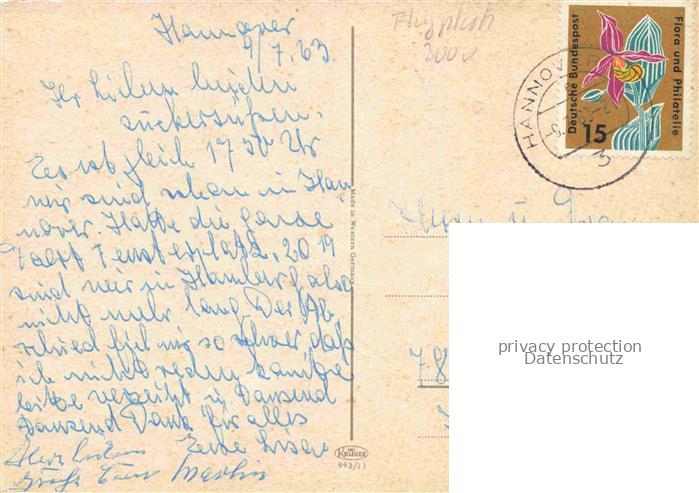 Hannover
9/7.63.
Flugplatz
3000
Ihr lieben beiden
zuckersüßen.
Es ist gleich 17 30 Uhr
wir sind schon in Han
nover. Hatte die ganze
Fahrt Fensterplatz. 20 19
sind wir in Hamburg also
nicht mehr lang. Der Ab
schied fiel mir so schwer, daß
ich nicht reden konnte
bitte verzeiht u. Tausend
Tausend Dank für alles
Eure Liser
Grüße Euer
Made in Western Germany
KRÜGER
943/11
HANNOV
Deutsche Bundespost
Flora und Philatelie
15
Herrn u. Frau
78
privacy protection
Datenschutz